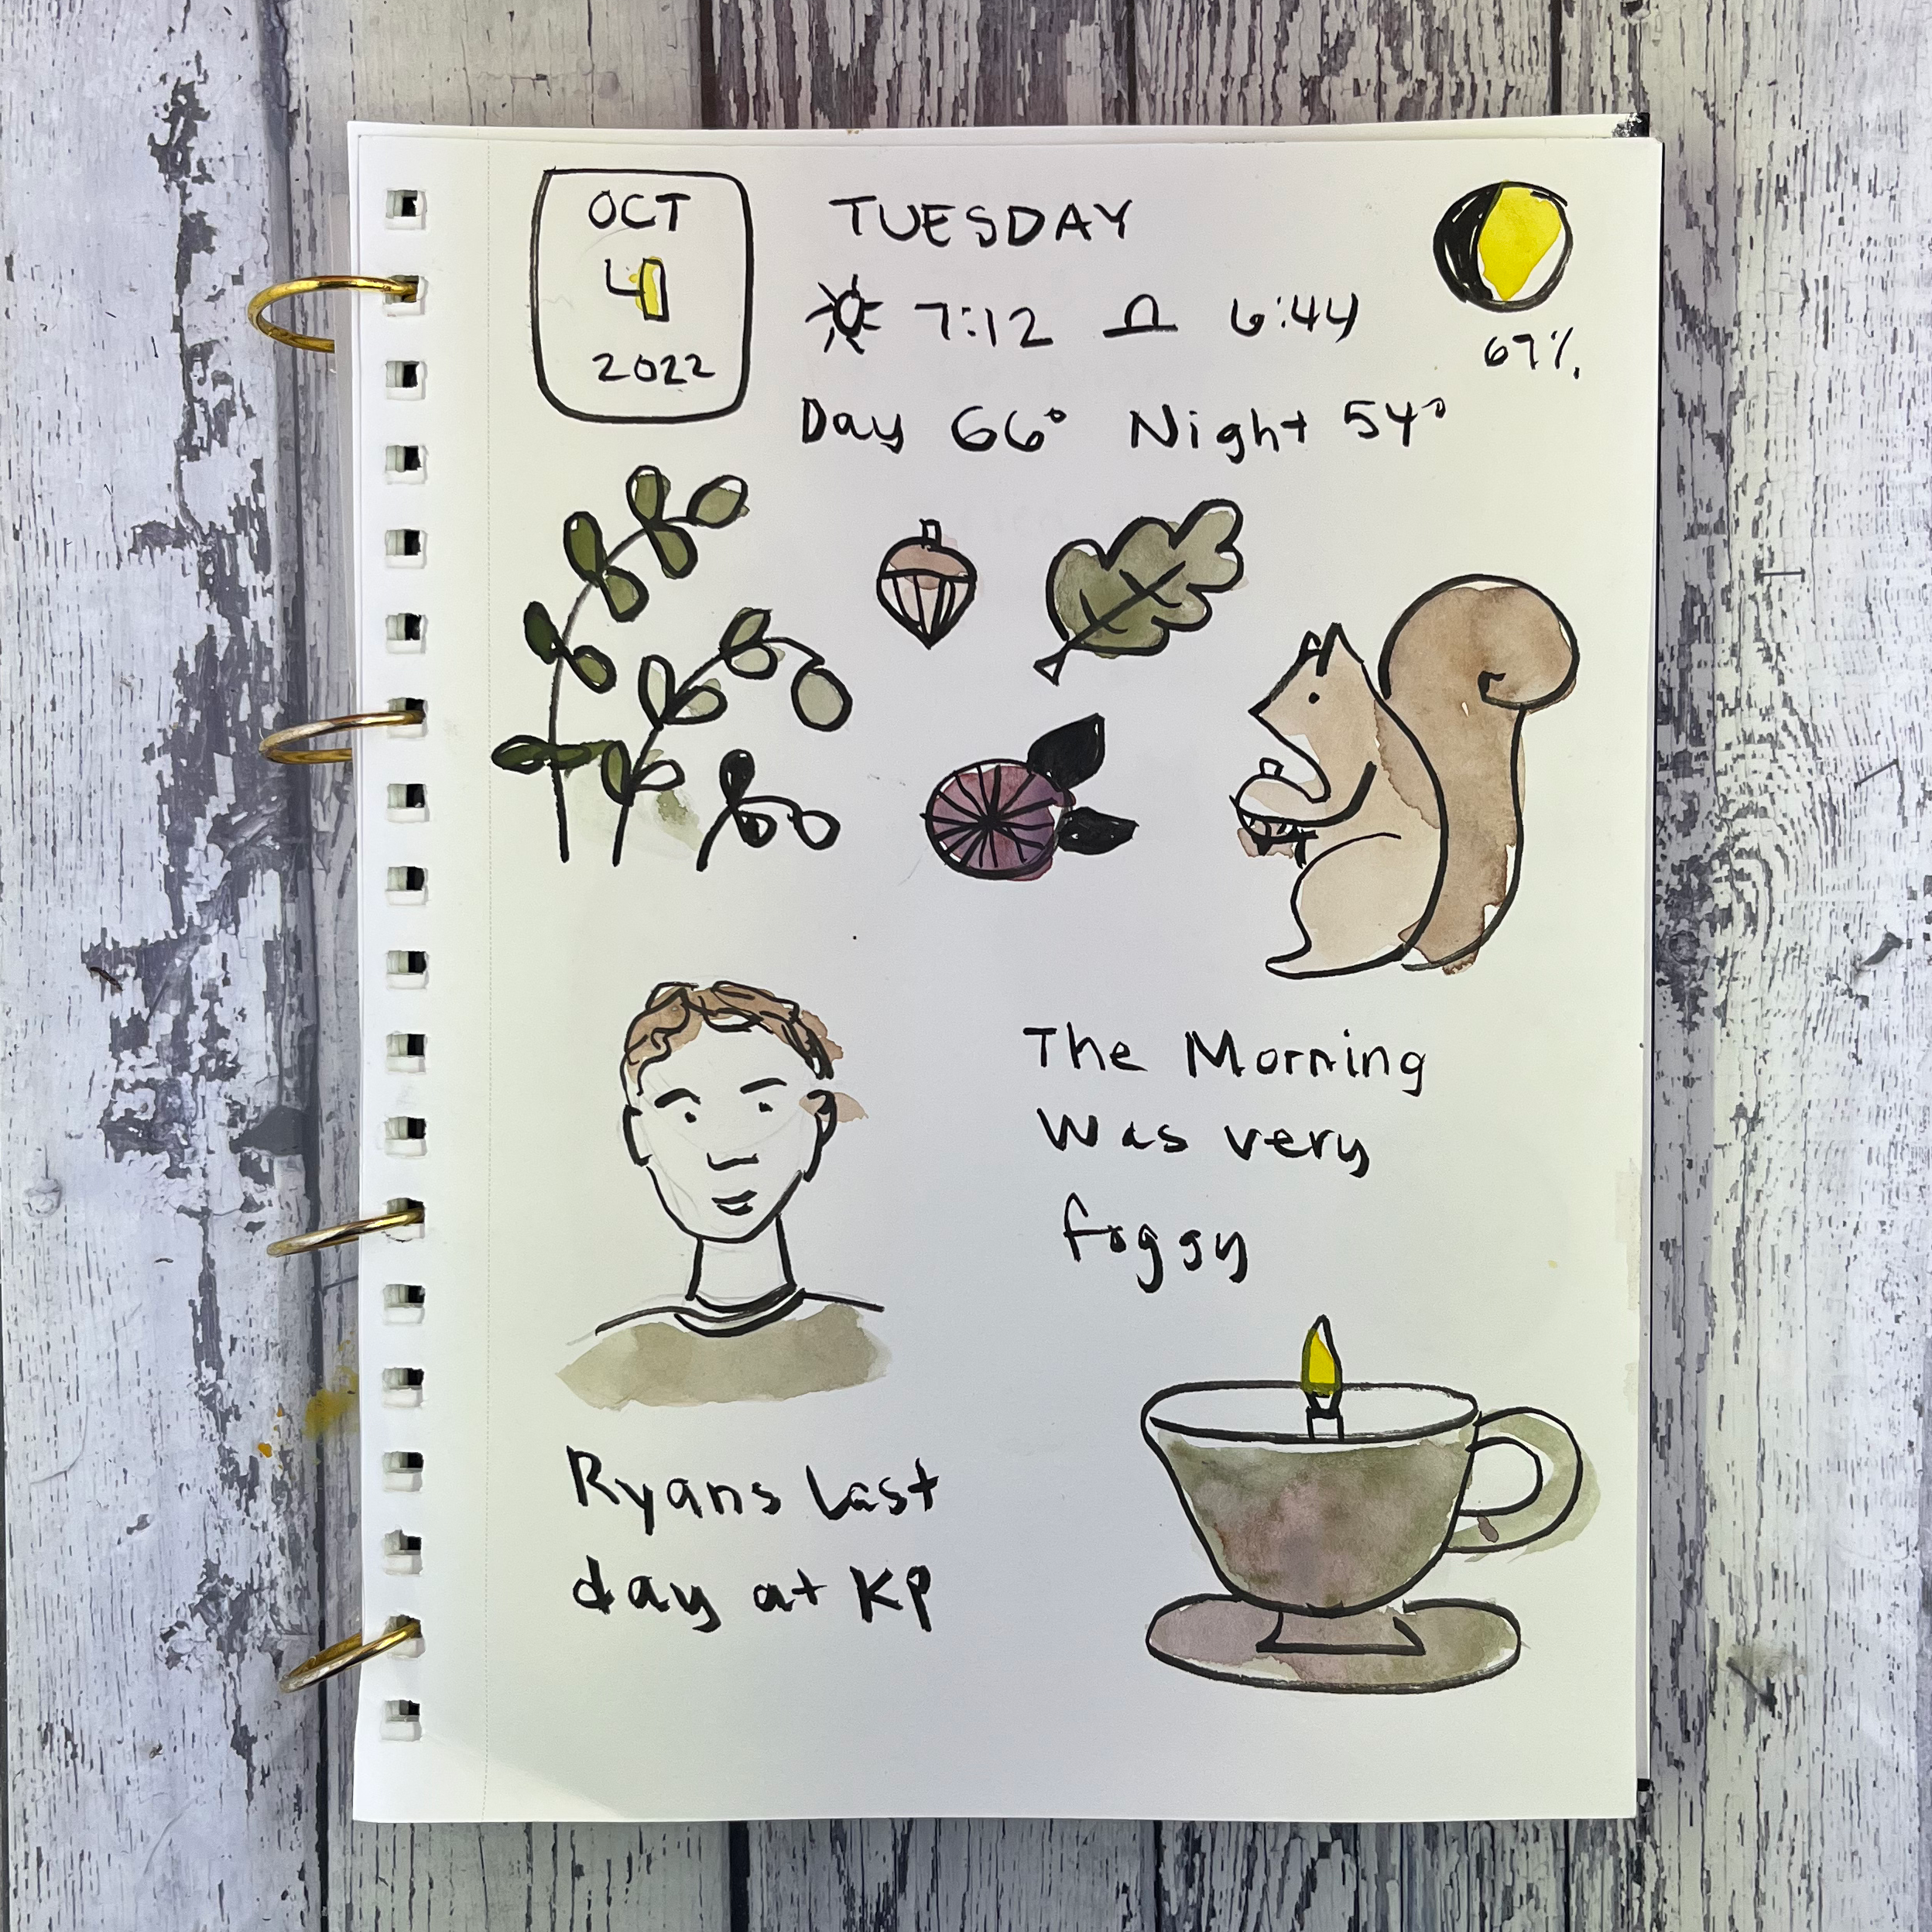 OCT
4
2022
TUESDAY
7:12 6:44
67%
Day 66° Night 54°
The Morning
Was very
foggy
Ryans last
day at KP